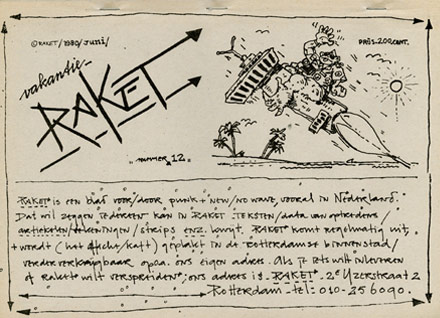 © RAKET / 1980 / juni /
PRIJS - 200 CENT.
vakantie-
RAKET
nummer 12.
RAKET is een blad voor/door punk + new/no wave, vooral in Nederland.
Dat wil zeggen iedereen kan in RAKET TEKSTEN/data van optredens/
artiekelen/tekeningen/strips enz. kwijt. RAKET komt regelmatig uit,
+ wordt (het affiche/kaft) geplakt in de Rotterdamse binnenstad/
verder verkrijgbaar op o.a. ons eigen adres. Als je iets wilt inleveren
of Raket wilt verspreiden: ons adres is - RAKET - 2e IJzerstraat 2
Rotterdam - tel: 010-256090.